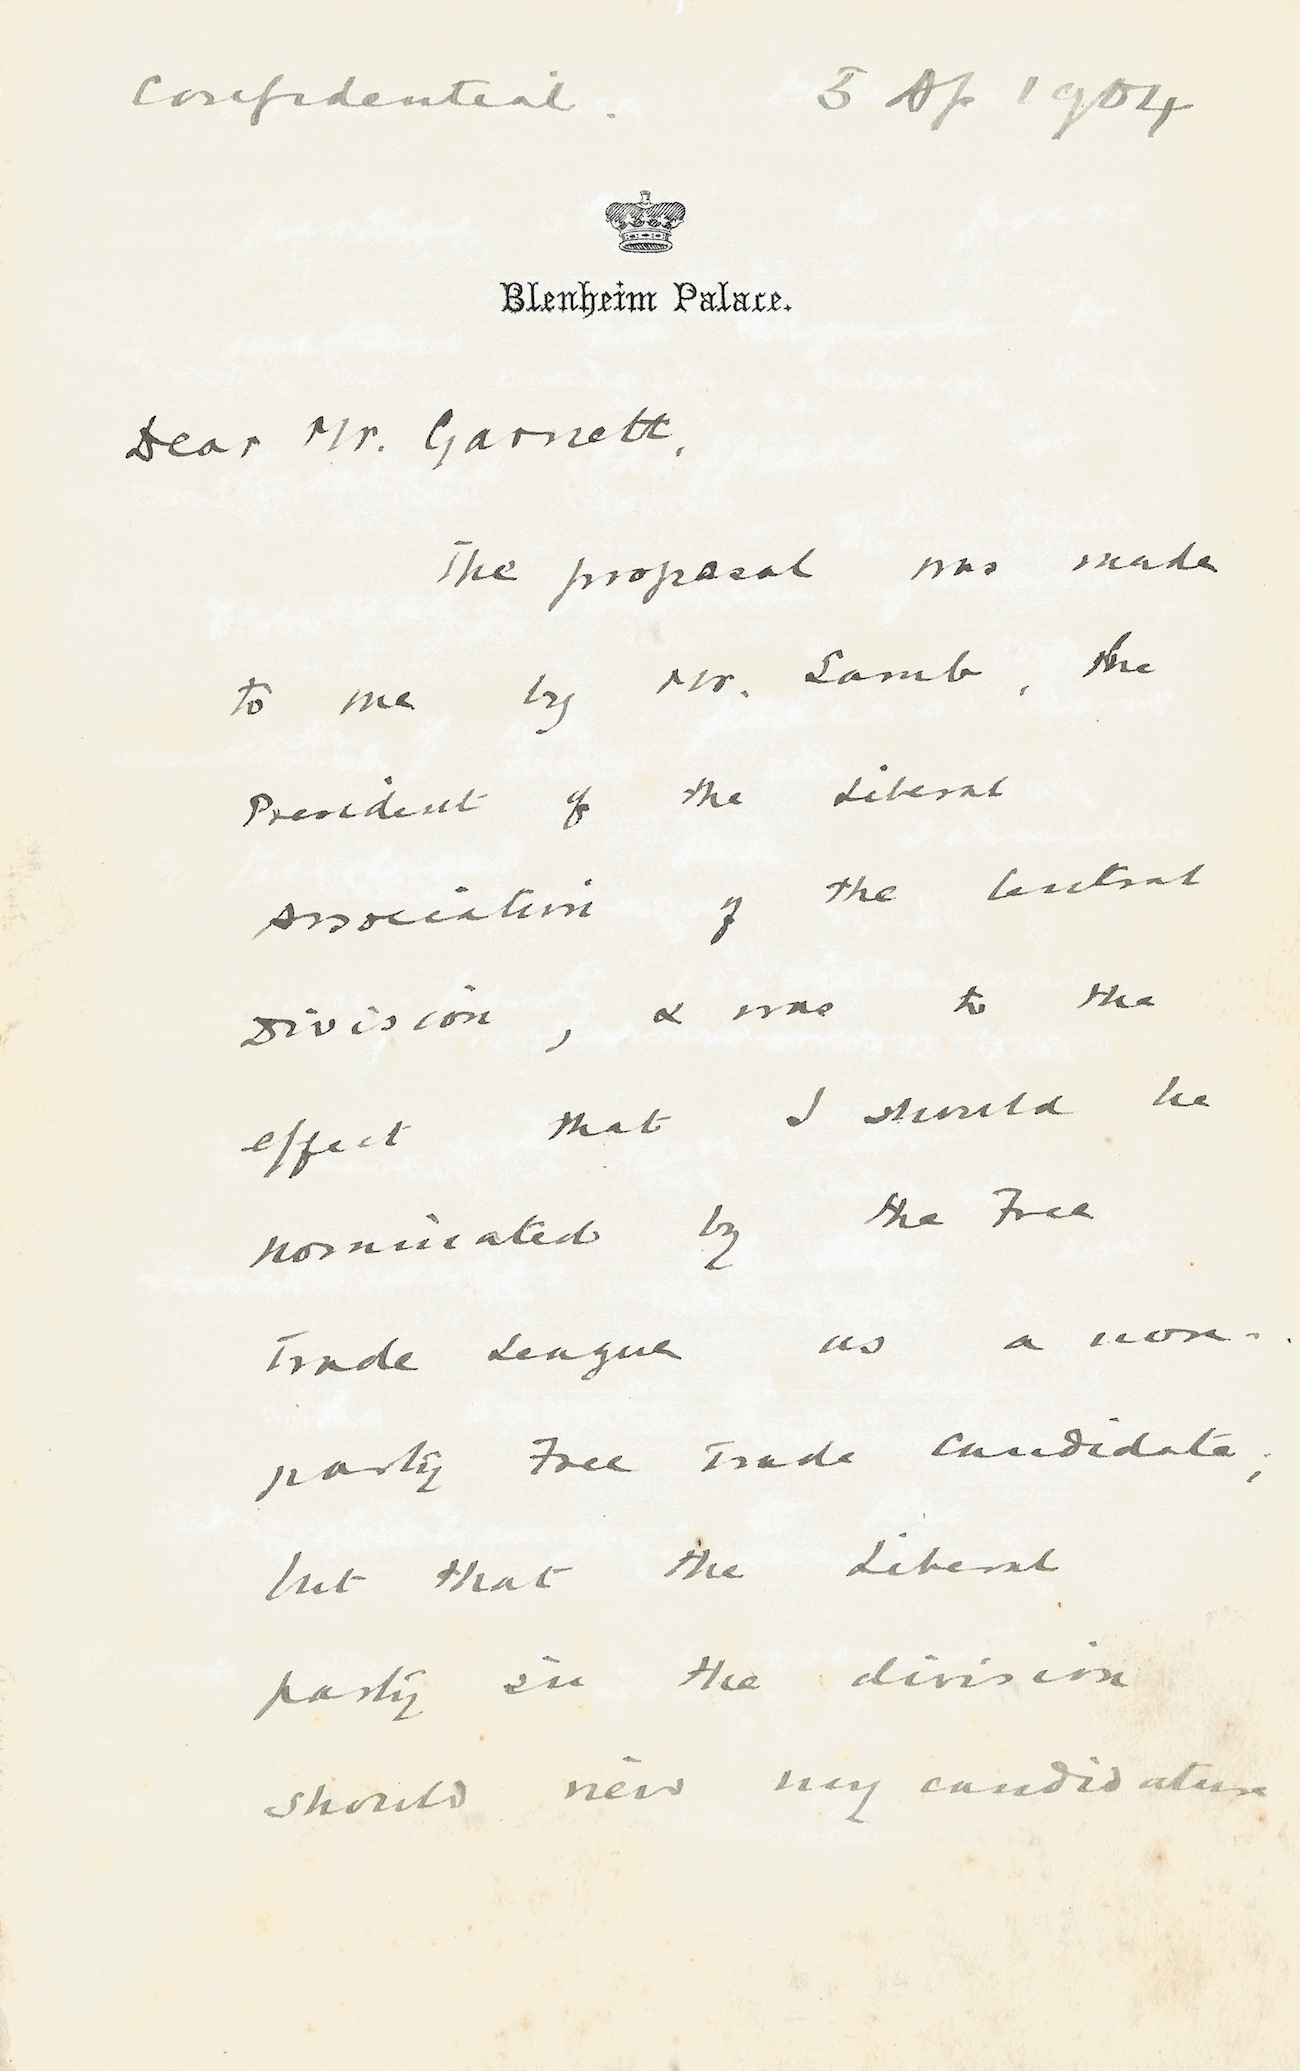 Confidential. 5 Ap 1904
Blenheim Palace.
Dear Mr. Garnett,
The proposal was made
to me by Mr. Lamb, the
President of the Liberal
Association of the Central
Division, & was to the
effect that I should be
nominated by the Free
Trade League as a non-
party Free Trade candidate;
but that the Liberal
party in the division
should view my candidature